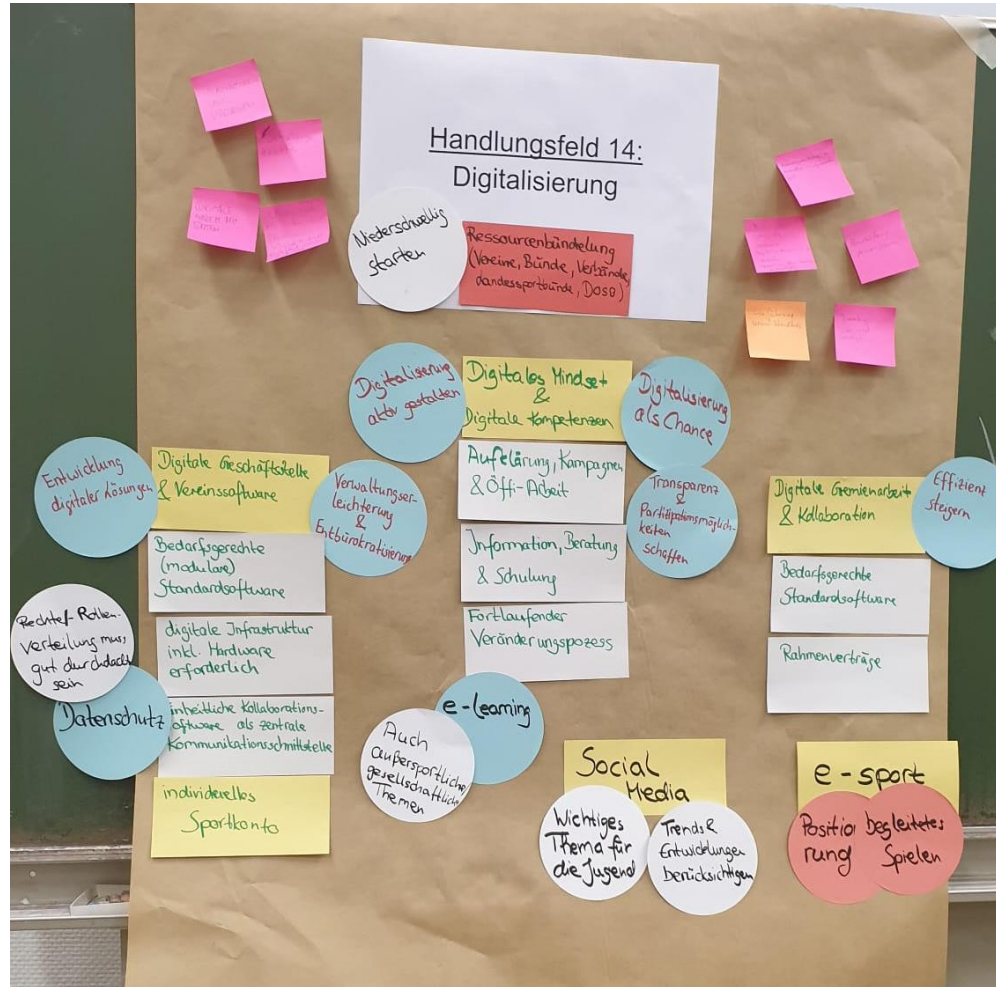 Handlungsfeld 14:
Digitalisierung
Niederschwellig
starten
Ressourcenbündelung
(Vereine, Bünde, Verbände,
Landessportbünde, DOSB)
Digitalisierung
aktiv gestalten
Digitales Mindset
&
Digitale Kompetenzen
Digitalisierung
als Chance
Aufklärung, Kampagnen
& Öffi-Arbeit
Information, Beratung
& Schulung
Fortlaufender
Veränderungspozess
Transparenz
&
Partizipationsmöglich-
keiten
schaffen
Entwicklung
digitaler Lösungen
Digitale Geschäftsstelle
& Vereinssoftware
Verwaltungser-
leichterung
&
Entbürokratisierung
Bedarfsgerechte
(modulare)
Standardsoftware
digitale Infrastruktur
inkl. Hardware
erforderlich
Rechte- Rollen-
verteilung muss
gut durchdacht
sein
Datenschutz
inheitliche Kollaborations-
oftware als zentrale
Kommunikationsschnittstelle
individuelles
Sportkonto
Digitale Gremienarbeit
& Kollaboration
Effizient
steigern
Bedarfsgerechte
Standardsoftware
Rahmenverträge
e-learning
Auch
außersportliche
gesellschaftliche
Themen
Social
Media
Wichtiges
Thema für
die Jugend
Trends &
Entwicklungen
berücksichtigen
e-sport
Positio
rung
begleitetes
Spielen